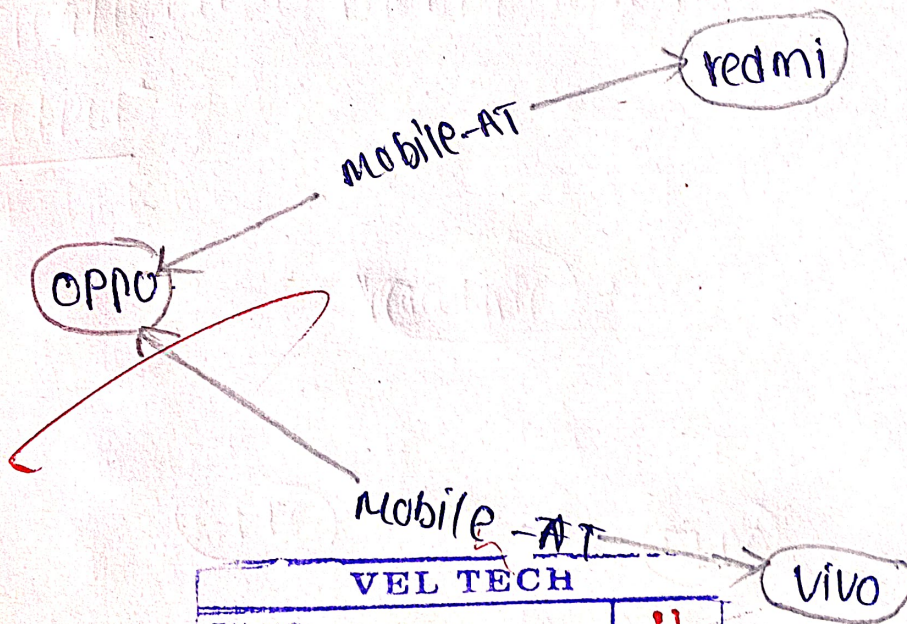 redmi
mobile-AT
oppo
Mobile-AT
vivo
VEL TECH